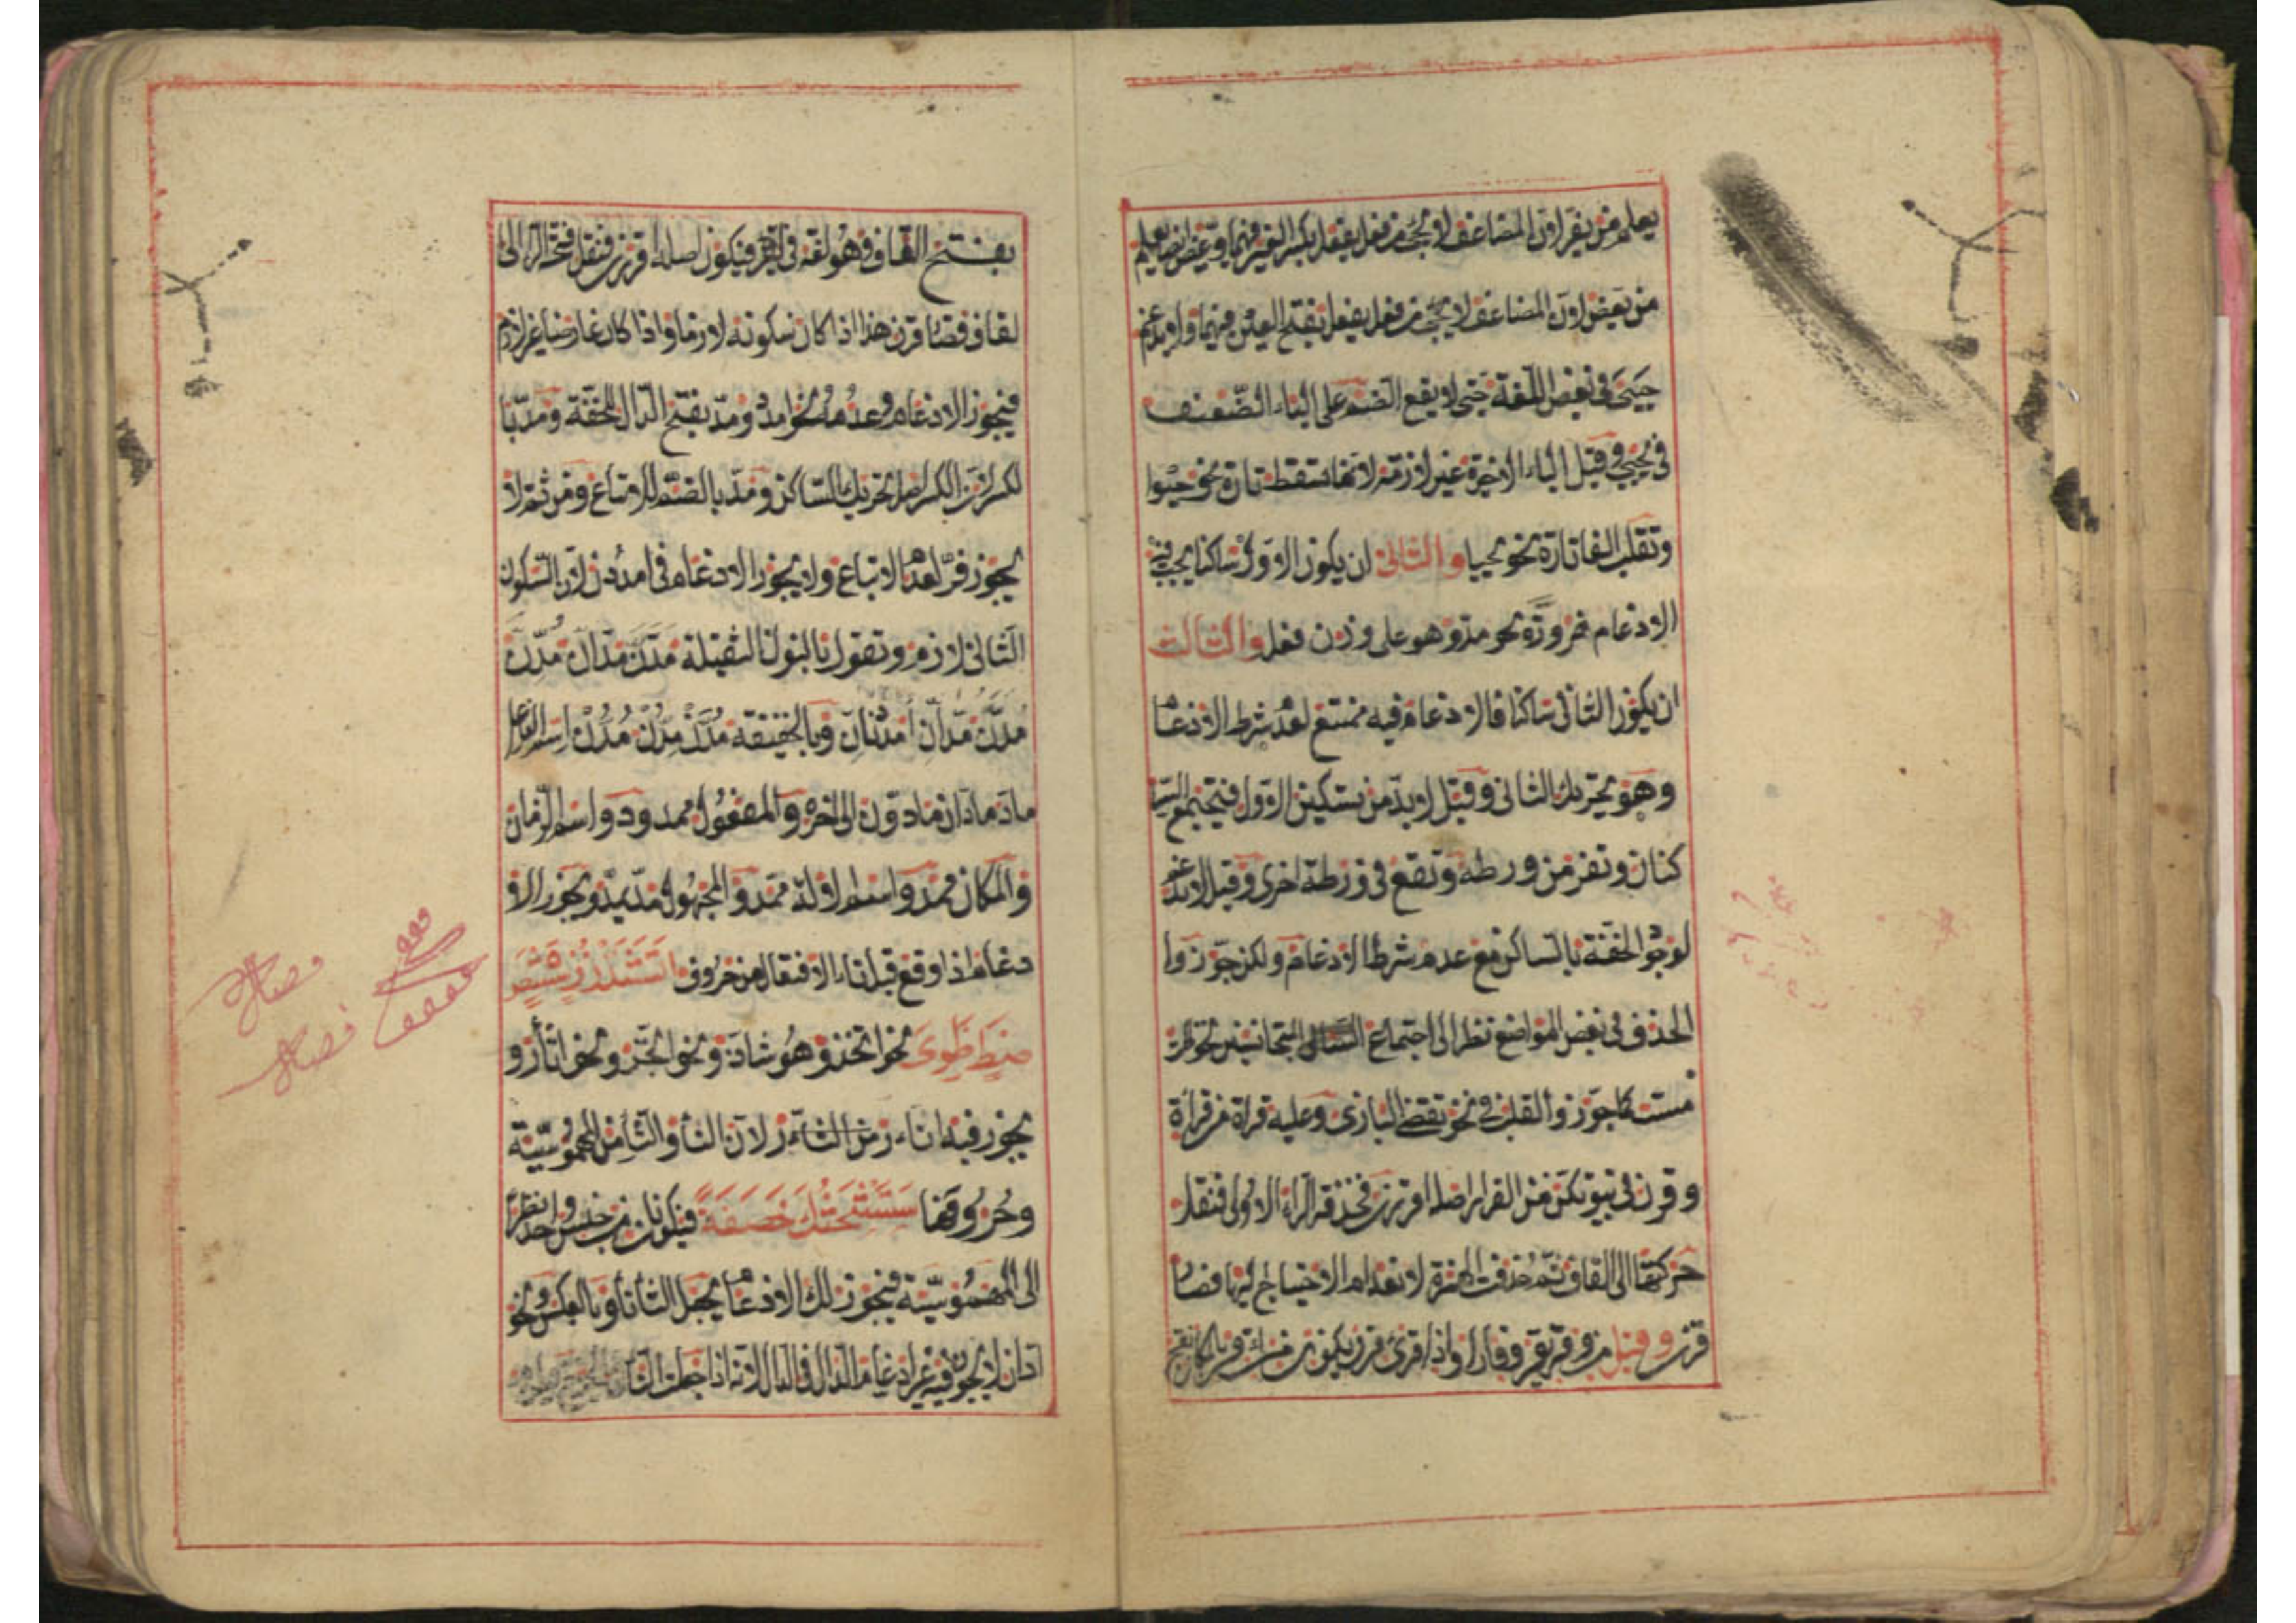 يعلم من يفر لان المضاعف لا يجئ من فعل يفعل بكسر العين فيهما و يعض ايضا يعلم
من يعض لان المضاعف لا يجئ من فعل يفعل بفتح العين فيهما ولا يدغم
حيى فى بعض اللغة حتى لا يقع الضم على الياء الضعيف
فى يحيي وقيل الياء الاخيرة غير لازمة لانها تسقط تارة نحو حيوا
وتقلب الفا تارة نحو يحييا والثانى ان يكون الاول ساكنا يجب فيه
الادغام ضرورة نحو مد وهو على وزن فعل والثالث
ان يكون الثانى ساكنا فالادغام فيه ممتنع لعدم شرط الادغام
وهو تحريك الثانى وقيل لا بد من تسكين الاول فيجتمع السا
كنان وتفر من ورطة وتقع فى ورطة اخرى وقيل لا يدغم
لوجود الخفة بالساكن مع عدم شرط الادغام ولكن جوزوا
الحذف فى بعض المواضع نظرا الى اجتماع المتجانسين نحو ظلت
مست كما جوزوا القلب فى نحو تقضى البازى وعليه قراة من قراءة
وقرن فى بيوتكن من القرار اصله اقررن فحذفت الراء الاولى فنقل
حركتها الى القاف ثم حذفت الهمزة لانعدام الاحتياج اليها فصار
قرن وقيل من وقر يقر وقارا واذا قرئ قرن يكون من قر بالمكان يقر
بفتح القاف وهو لغة فى يقر فيكون اصله اقررن فنقل فتحة الرا الى
لقاف فصار قرن هذا اذا كان سكونه لازما واذا كان عارضا غير لازم
فيجوز الادغام وعدمه نحو امدد ومد بفتح الدال للخفة ومد با
لكسر لان الكسر اصل تحريك الساكن ومد بالضم للاتباع ومن ثم لا
يجوز فر لعدم الاتباع ولا يجوز الادغام فى امددن لان السكون
الثانى لازم وتقول بالنون الثقيلة مدن مدان مدن
مدن مدان امددنان وبالخفيفة مدن مدن مدن اسم الفاعل
ماد مادان مادون الى اخره والمفعول ممدود واسم الزمان
والمكان ممد واسم الالة ممد والمجهول مد يمد ويجوز الا
دغام اذا وقع قبل تاء الافتعال من حروف اتثدذزسشص
ضطظوى نحو اتخذ وهو شاذ ونحو اتجر ونحو اثأر و
يجوز فيه اتاءر لان الثا والتا من المهموسية
وحروفها ستشحثك خصفة فيكونان من جنس واحد نظرا
الى المهموسية فيجوز لك الادغام بجعل الثا تا وبالعكس ونحو
ادان لا يجوز فيه غير ادغام الدال فى الدال لانه اذا جعلت التا